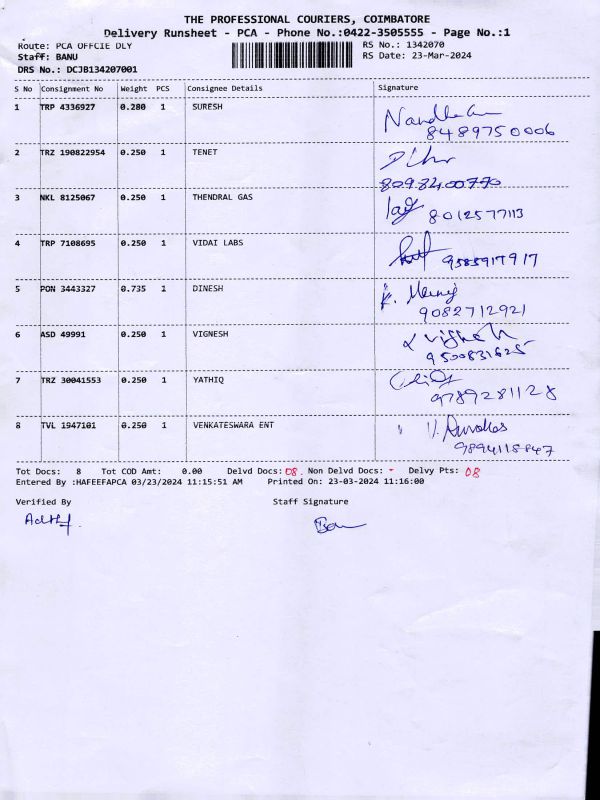 THE PROFESSIONAL COURIERS, COIMBATORE
Delivery Runsheet - PCA - Phone No.:0422-3505555 - Page No.:1
Route: PCA OFFCIE DLY RS No.: 1342070
Staff: BANU RS Date: 23-Mar-2024
DRS No.: DCJB134207001
S No Consignment No Weight PCS Consignee Details Signature
1 TRP 4336927 0.280 1 SURESH
8489750006
2 TRZ 190822954 0.250 1 TENET
8098400770
3 NKL 8125067 0.250 1 THENDRAL GAS
8012577113
4 TRP 7108695 0.250 1 VIDAI LABS
9585917917
5 PON 3443327 0.735 1 DINESH
9082712921
6 ASD 49991 0.250 1 VIGNESH
9500831625
7 TRZ 30041553 0.250 1 YATHIQ
9789281128
8 TVL 1947101 0.250 1 VENKATESWARA ENT
9894118847
Tot Docs: 8 Tot COD Amt: 0.00 Delvd Docs: 08. Non Delvd Docs: - Delvy Pts: 08
Entered By :HAFEEFAPCA 03/23/2024 11:15:51 AM Printed On: 23-03-2024 11:16:00
Verified By Staff Signature